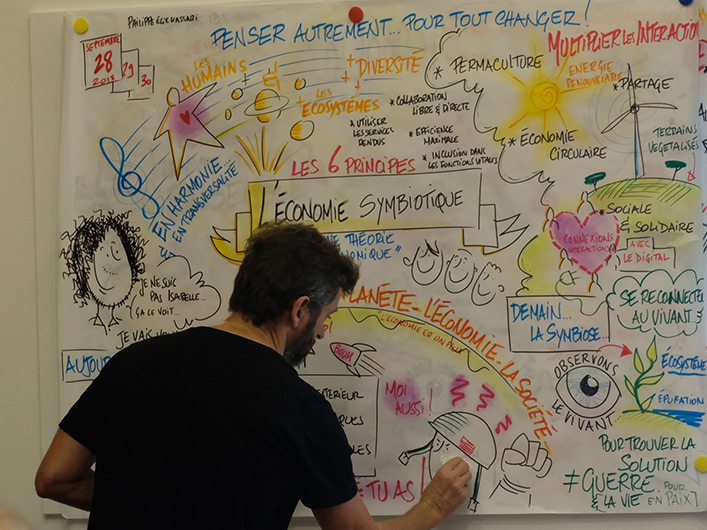 PHILIPPE ÉLIE KASSABI
SEPTEMBRE
28
2018
29
30
PENSER AUTREMENT... POUR TOUT CHANGER!
LES
HUMAINS
&
+ LES
ÉCOSYSTÈMES
+ DIVERSITÉ
+
* UTILISER
LES SERVICES
RENDUS
* COLLABORATION
LIBRE & DIRECTE
* EFFICIENCE
MAXIMALE
* INCLUSION DANS
LES FONCTIONS VITALES
EN HARMONIE...
EN TRANSVERSALITÉ
LES 6 PRINCIPES
L'ÉCONOMIE SYMBIOTIQUE
THÉORIE
* PERMACULTURE
MULTIPLIER LES INTERACTION
ÉNERGIE
RENOUVELABLE
* PARTAGE
* ÉCONOMIE
CIRCULAIRE
TERRAINS
VEGETALISÉS
* SOCIALE
& SOLIDAIRE
AVEC
LE DIGITAL
CONNEXIONS
INTERACTIONS
SE RECONNECTER
AU VIVANT...
JE NE SUIS
PAS ISABELLE...
ÇA LE VOIT...
JE VAIS
AUJOU
PLANÈTE - L'ÉCONOMIE - LA SOCIÉTÉ
L'ÉCONOMIE EST UN
BOUM
MOI
AUSSI!
TU AS
DEMAIN...
LA SYMBIOSE...
OBSERVONS
LE VIVANT...
ÉCOSYSTÈME
ÉPURATION
POUR TROUVER LA
SOLUTION
≠ GUERRE POUR
& LA VIE EN PAIX